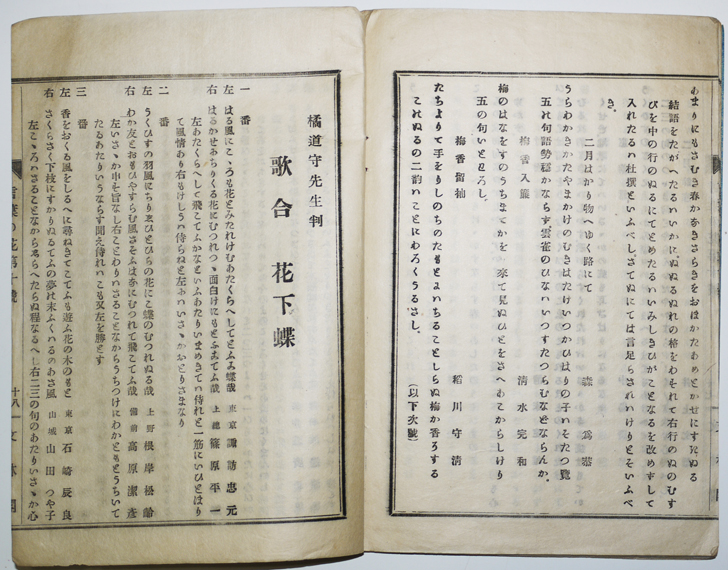 あまりにもさむき春かあきさらきをおほかたあめとかせにすぐしぬる
結語をたがへたるハいかに、ぬぬるぬれの格をわそれて右行のぬのむす
びを中の行のぬるにてとめたるハいみしきひがことなるを改めずして
入れたるハ杜撰といふべし、さてぬにては言足らされハけりとそいふべ
き、
二月はかり物へゆく路にて
森
うらわかきかたやまかけのむきはたけいつかひはりの子ハそたつ覽
五れ句語勢穩かならず、雲雀のひなハいつすたつらむなどならんか、
梅香入簾
清水完和
五の句いとよろし、
梅香留袖
稻川守清
たちよりて手をりしのちのたもとよハいちることしらぬ梅か香そする
これぬるの二韵ハことにわろくうるさし、
(以下次號)
橘道守先生判
歌合　花下蝶
一番
左 はる風にこゝろも花とみたれけむあたくらへしてとふみ蝶哉 東京 諏訪忠元
右 はるかせあちりくる花にむつれつゝ面白けにもとふこてふ哉 上總 篠原平一
左あたくらへして飛こてふかなといふあたりいまめきてハ侍れと一筋にいひとほり
て風情あり右もけしうハ侍らねと左にハいさゝかおとりさまなり
二番
左 うくひすの羽風にちりゑひとひらの花にこ蝶のむつれぬる哉 上野 根岸松齡
右 わか友とおもひやすらむ風さそふはな​にむつれて飛こてふ哉 備前 高原潔彦
左ハいさゝか申を旨なし右ことわりハさることなからうちつけにわかともとうちいて
たるあたりいうならす聞え侍れハこも又左を勝とす
三番
左 香をおくる風をしるへに尋ねきてこてふも遊ふ花の木のもと 東京 石崎辰良
右 さくらさく下枝にすかりぬるてふの夢は末ふくハるのあさ風 山城 山田つや子
左こゝろハさることなから尋らへたらぬ程なるへし右二三の句のあたりいさゝか心
言葉の花第十號
十八